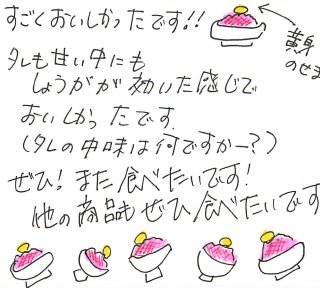 すごくおいしかったです!!
黄身
のせま
タレも甘い中にも
しょうがが効いた感じで
おいしかったです.
(タレの中味は何ですかー?)
ぜひ!また食べたいです!
他の商品もぜひ食べたいです